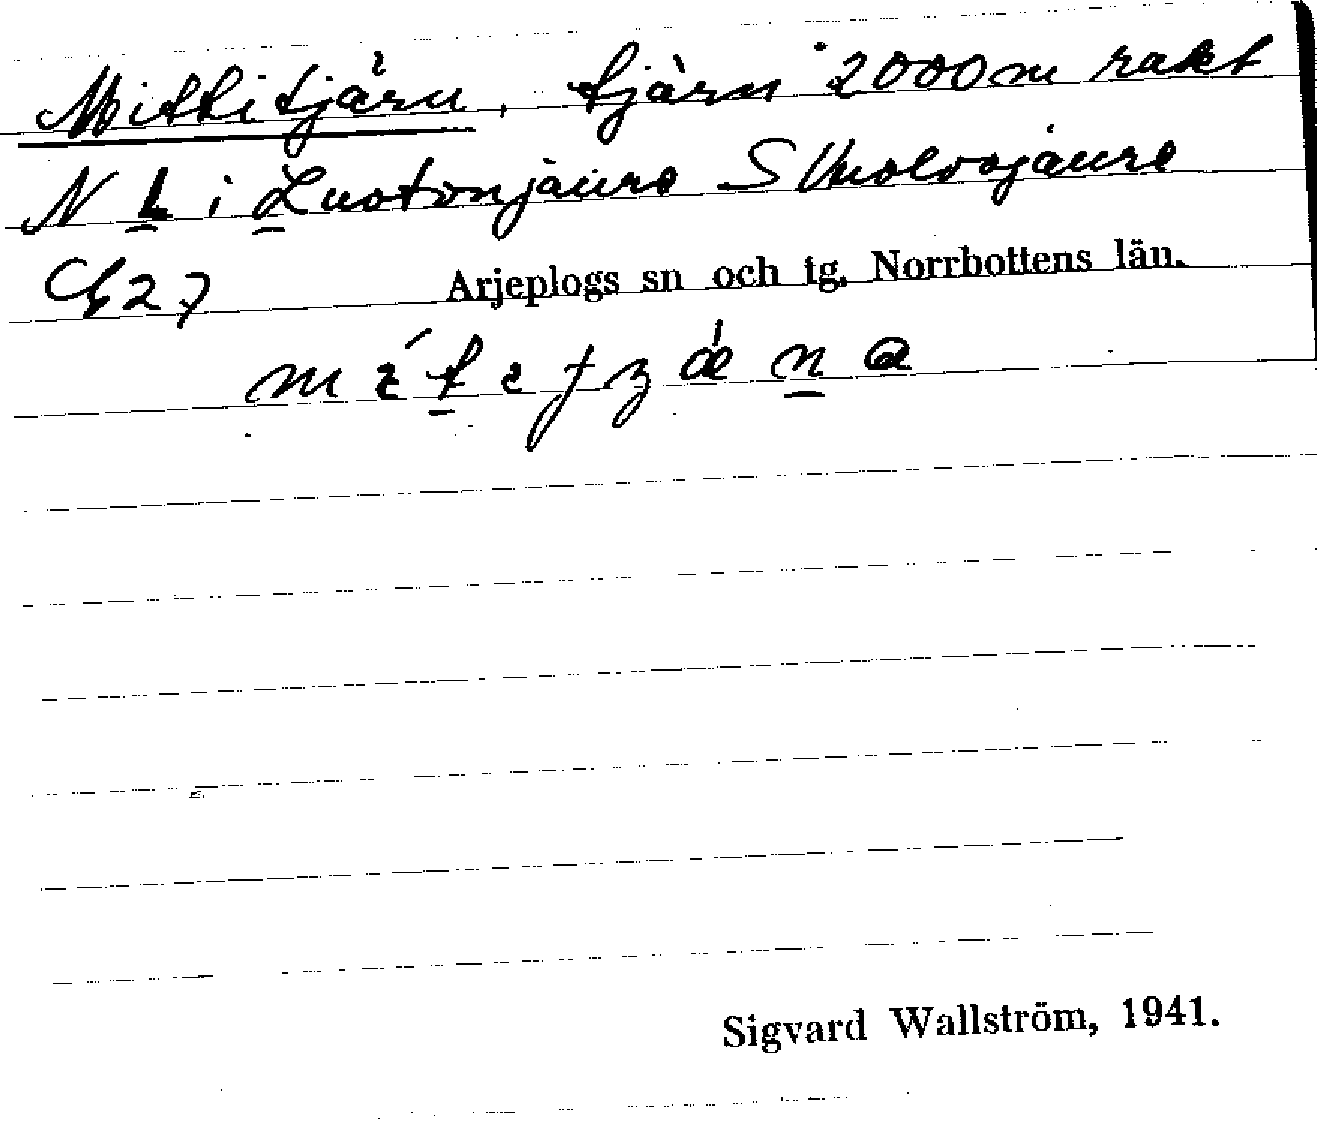 Mittitjärn, tjärn 2000m rakt
N L i Luotonjaure S
27 Arjeplogs sn och tg, Norrbottens län.
Sigvard Wallström, 1941.